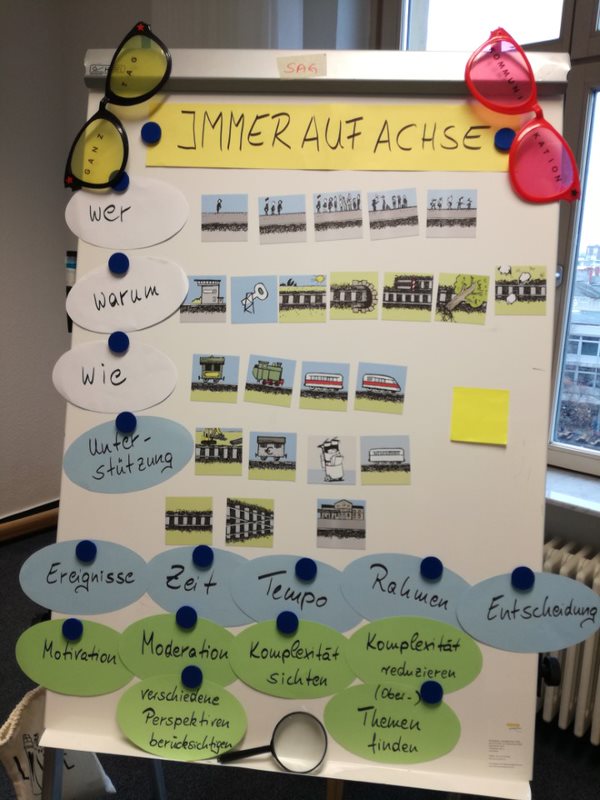 SAG
GANZ
TAG
KOMMUNI
KATION
IMMER AUF ACHSE
wer
warum
wie
Unter-
stützung
Ereignisse
Zeit
Tempo
Rahmen
Entscheidung
Motivation
Moderation
Komplexität
sichten
Komplexität
reduzieren
verschiedene
Perspektiven
berücksichtigen
(Ober-)
Themen
finden